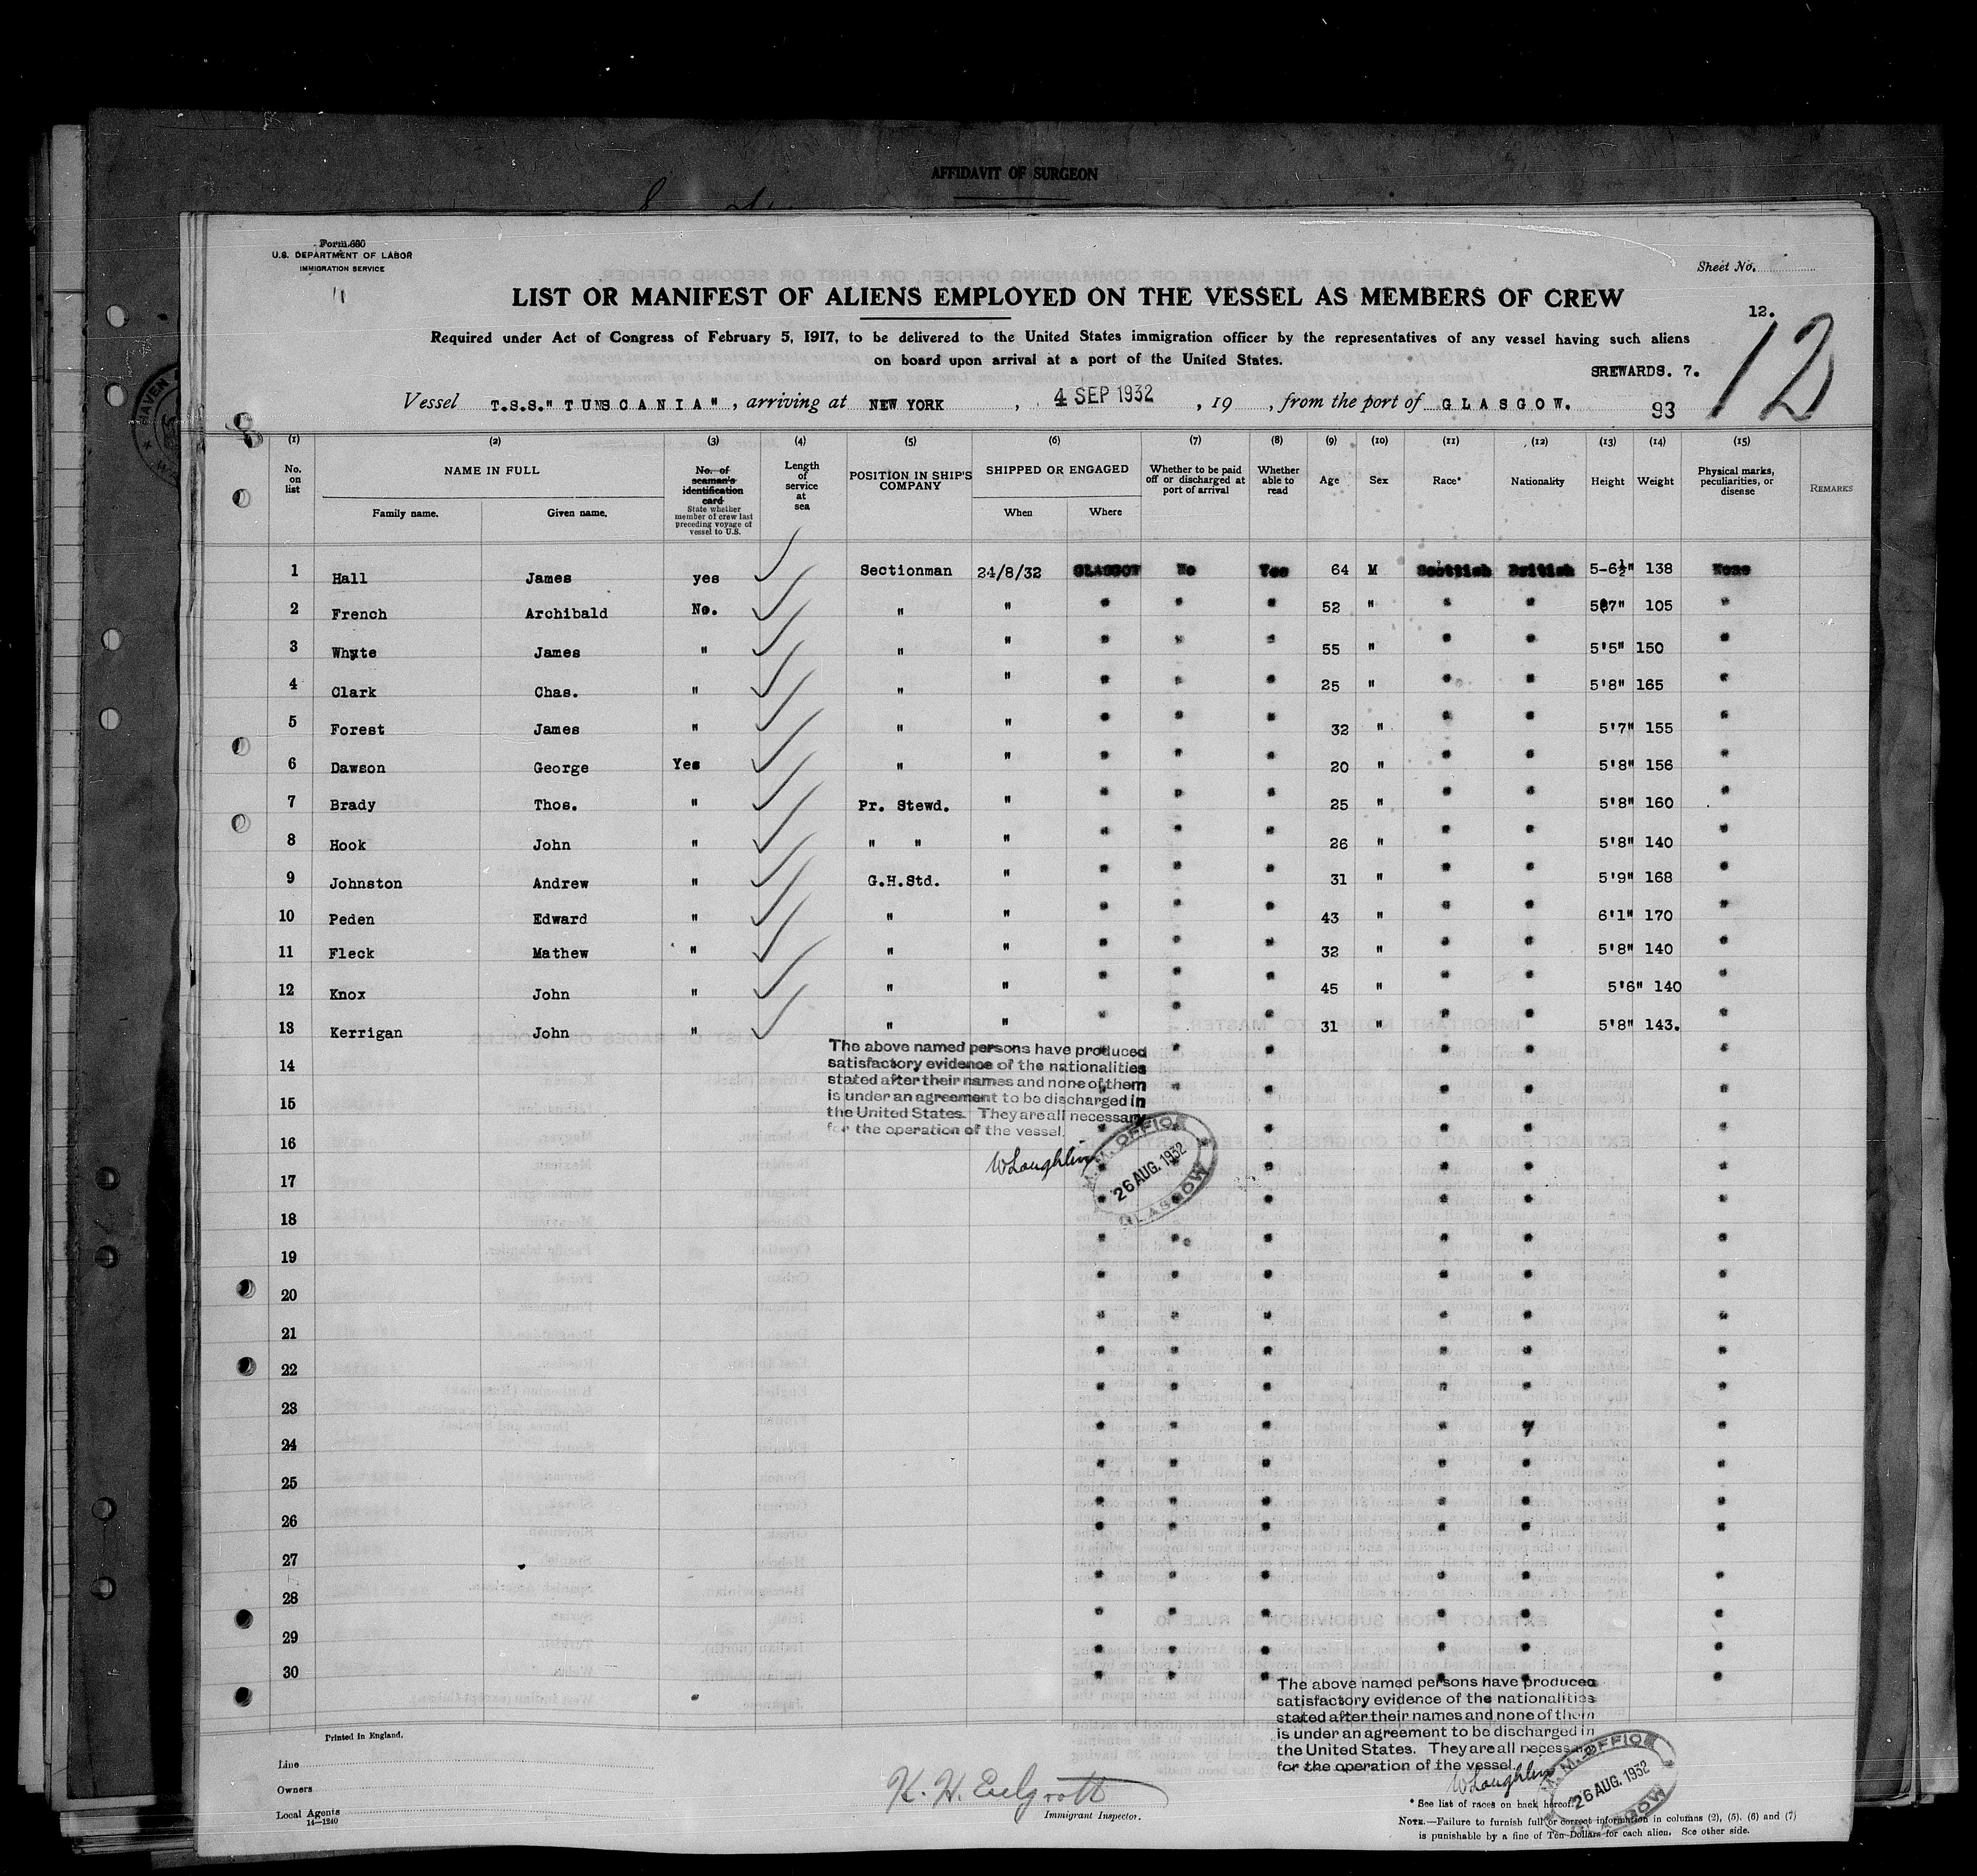 AFFIDAVIT OF SURGEON
Form 680
U.S. DEPARTMENT OF LABOR
IMMIGRATION SERVICE
Sheet No.
LIST OR MANIFEST OF ALIENS EMPLOYED ON THE VESSEL AS MEMBERS OF CREW
12.
12
Required under Act of Congress of February 5, 1917, to be delivered to the United States immigration officer by the representatives of any vessel having such aliens
on board upon arrival at a port of the United States.
SREWARDS. 7.
Vessel T.S.S." TUNSCANIA", arriving at NEW YORK, 4 SEP 1932, 19 , from the port of GLASGOW. 93
(1) (2) (3) (4) (5) (6) (7) (8) (9) (10) (11) (12) (13) (14) (15)
No. on list NAME IN FULL Family name. Given name. No. of seaman's identification card State whether member of crew last preceding voyage of vessel to U.S. Length of service at sea POSITION IN SHIP'S COMPANY SHIPPED OR ENGAGED When Where Whether to be paid off or discharged at port of arrival Whether able to read Age Sex Race* Nationality Height Weight Physical marks, peculiarities, or disease REMARKS
1 Hall James yes Sectionman 24/8/32 GLASGOW No Yes 64 M Scottish British 5-6½" 138 None
2 French Archibald No. " " " " " 52 " " " 5'7" 105 "
3 Whyte James " " " " " " 55 " " " 5'5" 150 "
4 Clark Chas. " " " " " " 25 " " " 5'8" 165 "
5 Forest James " " " " " " 32 " " " 5'7" 155 "
6 Dawson George Yes " " " " " 20 " " " 5'8" 156 "
7 Brady Thos. " Pr. Stewd. " " " " 25 " " " 5'8" 160 "
8 Hook John " " " " " " " 26 " " " 5'8" 140 "
9 Johnston Andrew " G.H.Std. " " " " 31 " " " 5'9" 168 "
10 Peden Edward " " " " " " 43 " " " 6'1" 170 "
11 Fleck Mathew " " " " " " 32 " " " 5'8" 140 "
12 Knox John " " " " " " 45 " " " 5'6" 140 "
13 Kerrigan John " " " " " " 31 " " " 5'8" 143. "
The above named persons have produced
satisfactory evidence of the nationalities
stated after their names and none of them
is under an agreement to be discharged in
the United States. They are all necessary
for the operation of the vessel.
WLoughlin
M.M. OFFICE
26 AUG. 1932
GLASGOW
14
15
16
17
18
19
20
21
22
23
24
25
26
27
28
29
30
The above named persons have produced
satisfactory evidence of the nationalities
stated after their names and none of them
is under an agreement to be discharged in
the United States. They are all necessary
for the operation of the vessel.
WLoughlin
M.M. OFFICE
26 AUG. 1932
GLASGOW
Printed in England.
Line
Owners
Local Agents
14—1240
Immigrant Inspector.
* See list of races on back hereof.
NOTE.—Failure to furnish full or correct information in columns (2), (5), (6) and (7)
is punishable by a fine of Ten Dollars for each alien. See other side.